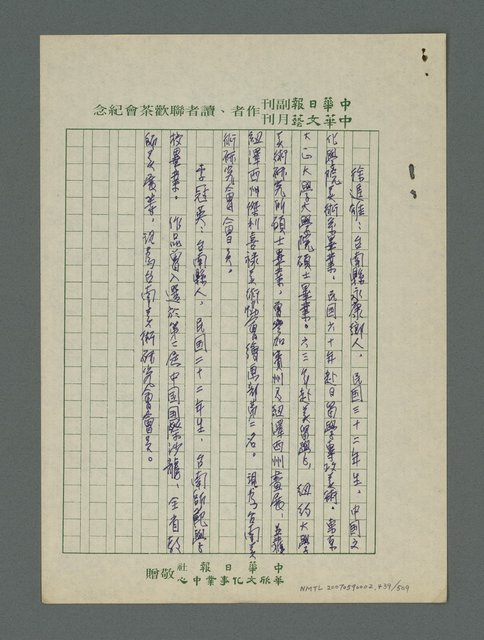 中華日報副刊
中華文藝月刊
作者、讀者聯歡茶會紀念
徐進雄：台南縣永康鄉人，民國三十二年生。中國文
化學院美術系畢業。民國六十年赴日留學專攻美術。東京
大正大學大學院碩士畢業。六三年赴美留學，紐約大學
美術研究所碩士畢業，曾參加賓州及紐澤西州畫展，並獲
紐澤西州傑利喜祿美術協會繪畫部第二名。現為台南美
術研究會會員。
李冠英：台南縣人，民國二十二年生，台南師範學
校畢業。作品曾入選於第七屆中國國際沙龍、全省教
師美展等。現為台南美術研究會會員。
中華日報社
華欣文化事業中心
敬贈
NMTL 20070590002.439/569